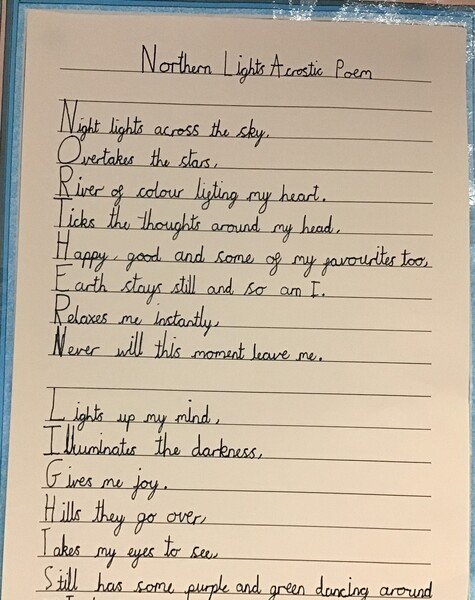 Northern Lights Acrostic Poem
Night lights across the sky,
Overtakes the stars,
River of colour ligting my heart.
Ticks the thoughts around my head,
Happy, good and some of my favourites too,
Earth stays still and so am I.
Relaxes me instantly,
Never will this moment leave me.
Lights up my mind,
Illuminates the darkness,
Gives me joy.
Hills they go over,
Takes my eyes to see,
Still has some purple and green dancing around